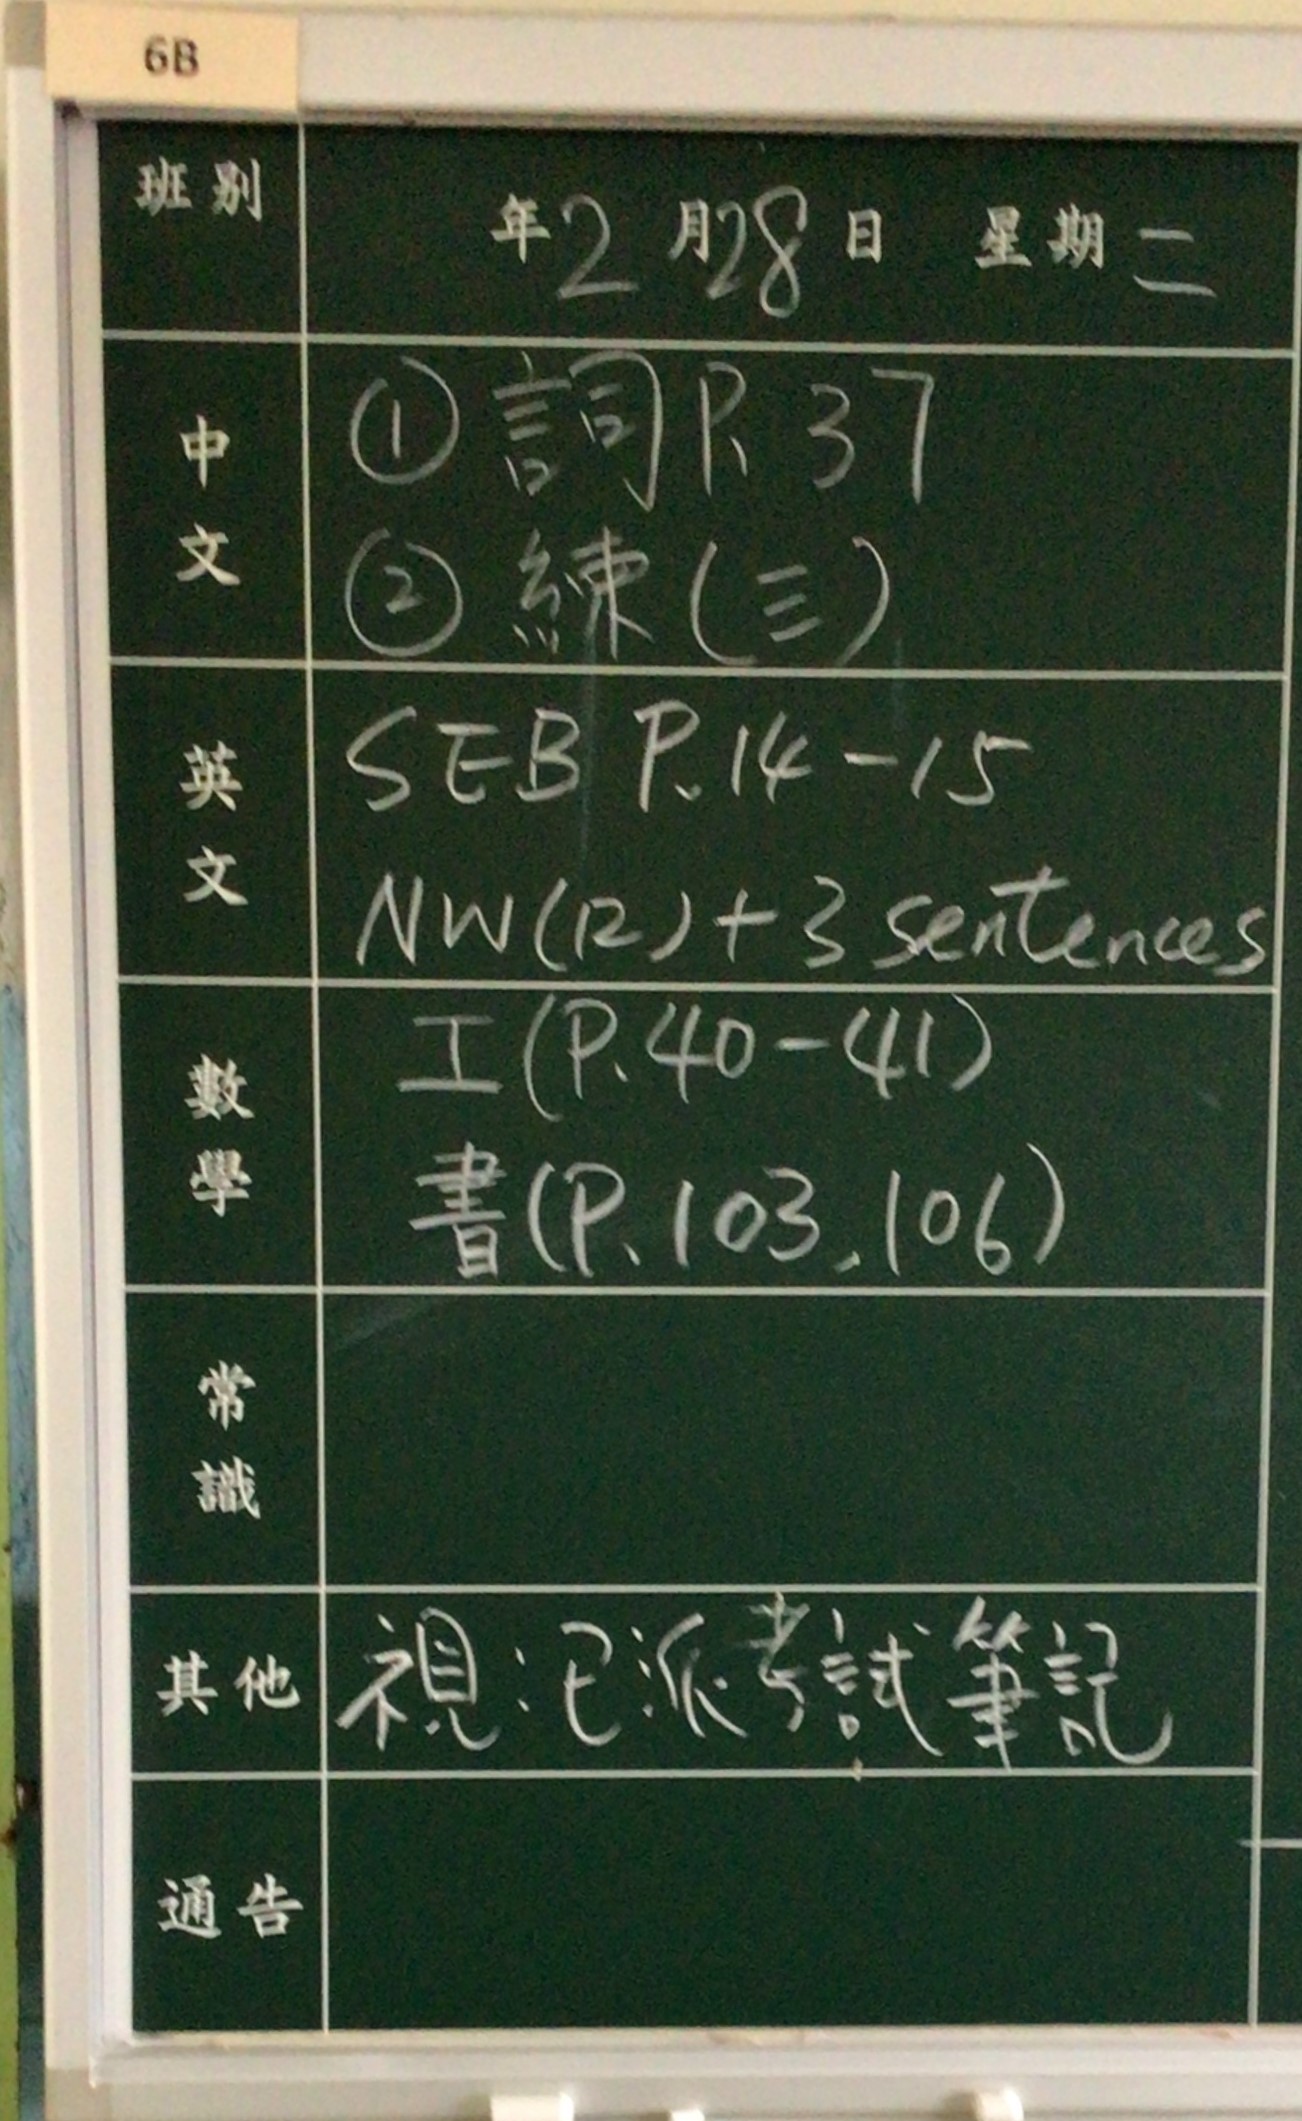 6B
班別
年2月28日 星期二
中文
①詞P.37
②練(三)
英文
SEB P.14-15
NW(12)+3 sentences
數學
工(P.40-41)
書(P.103,106)
常識
其他
視:已派考試筆記
通告